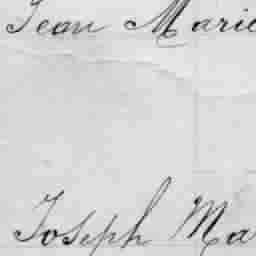 Jean Marie
Joseph Ma